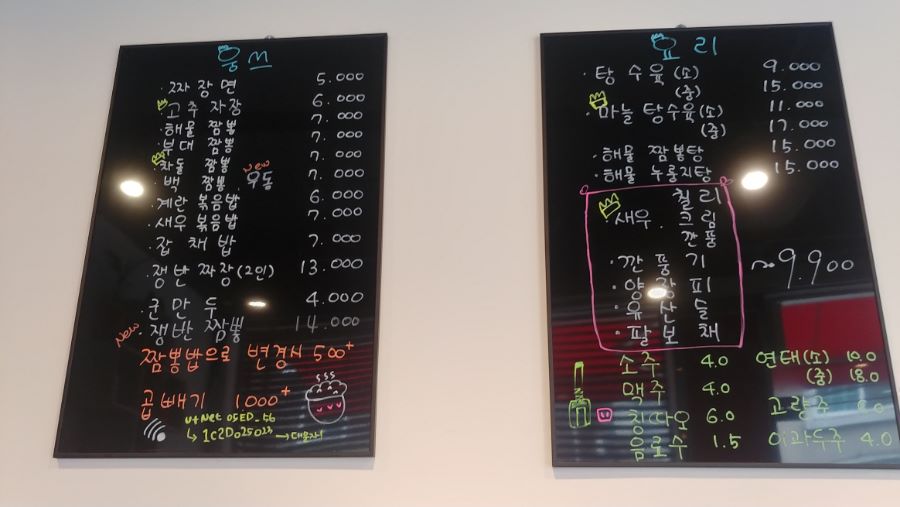 짜장면 5.000
고추 자장 6.000
해물 짬뽕 7.000
부대 짬뽕 7.000
차돌 짬뽕 7.000
백 짬뽕 new 우동 7.000
계란 볶음밥 6.000
새우 볶음밥 7.000
잡채밥 7.000
쟁반 짜장(2인) 13.000
군만두 4.000
new 쟁반 짬뽕 14.000
짬뽕밥으로 변경시 500+
곱빼기 1000+
U+Net 05ED_56
1C2D025023 → 대문자!
요리
탕수육 (소) 9.000
(중) 15.000
마늘 탕수육(소) 11.000
(중) 17.000
해물 짬뽕탕 15.000
해물 누룽지탕 15.000
칠리
새우 크림
깐풍
깐풍기 ~9.900
양장피
유산슬
팔보채
소주 4.0
맥주 4.0
칭따오 6.0
음료수 1.5
연태(소) 10.0
(중) 18.0
고량주
이과두주 4.0